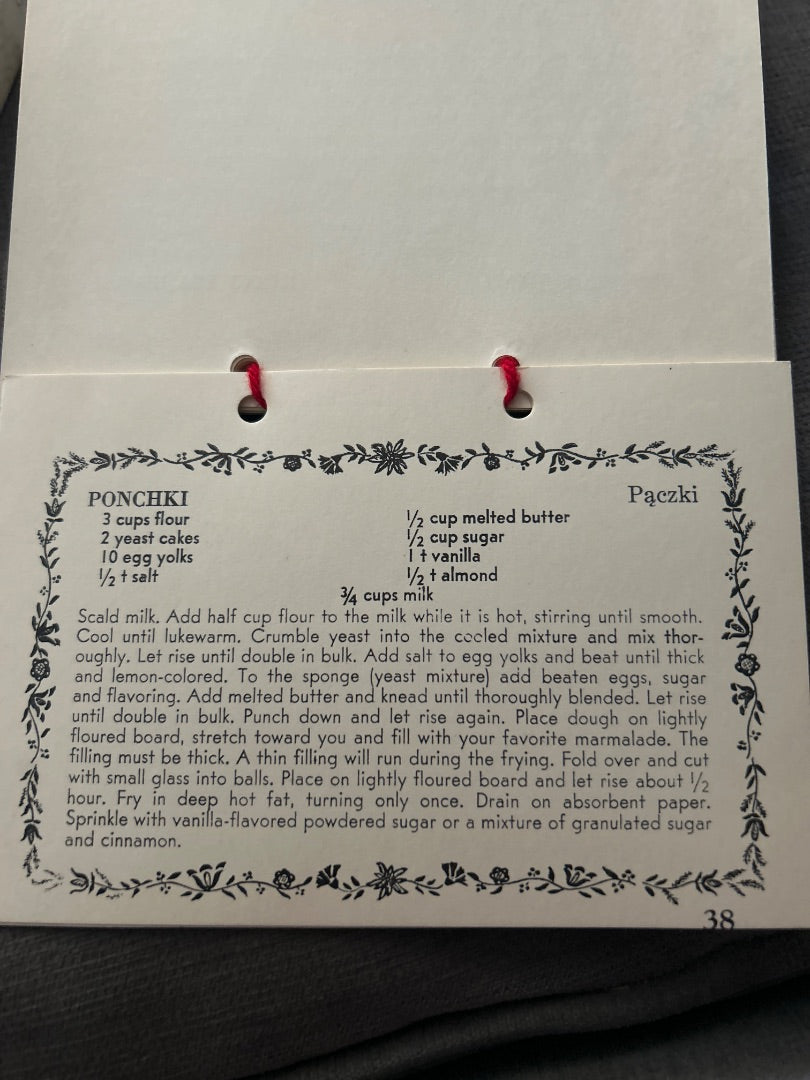 PONCHKI Pączki
3 cups flour ½ cup melted butter
2 yeast cakes ½ cup sugar
10 egg yolks 1 t vanilla
½ t salt ½ t almond
¾ cups milk
Scald milk. Add half cup flour to the milk while it is hot, stirring until smooth.
Cool until lukewarm. Crumble yeast into the cooled mixture and mix thor-
oughly. Let rise until double in bulk. Add salt to egg yolks and beat until thick
and lemon-colored. To the sponge (yeast mixture) add beaten eggs, sugar
and flavoring. Add melted butter and knead until thoroughly blended. Let rise
until double in bulk. Punch down and let rise again. Place dough on lightly
floured board, stretch toward you and fill with your favorite marmalade. The
filling must be thick. A thin filling will run during the frying. Fold over and cut
with small glass into balls. Place on lightly floured board and let rise about ½
hour. Fry in deep hot fat, turning only once. Drain on absorbent paper.
Sprinkle with vanilla-flavored powdered sugar or a mixture of granulated sugar
and cinnamon.
38